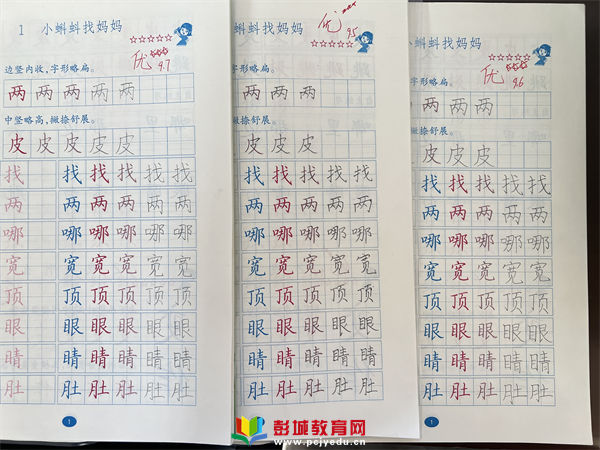 1 小蝌蚪找妈妈
优
9.7
边竖内收,字形略扁。
两 两 两 两 两
中竖略高,撇捺舒展。
皮 皮 皮 皮 皮
找 找 找 找 找 找
两 两 两 两 两 两
哪 哪 哪 哪 哪 哪
宽 宽 宽 宽 宽 宽
顶 顶 顶 顶 顶 顶
眼 眼 眼 眼 眼 眼
睛 睛 睛 睛 睛 睛
肚 肚 肚 肚 肚 肚
1
蝌蚪找妈妈
优
95
字形略扁。
两 两 两
撇捺舒展。
皮 皮 皮 皮
找 找 找 找 找
两 两 两 两 两
哪 哪 哪 哪 哪
宽 宽 宽 宽 宽
顶 顶 顶 顶 顶
眼 眼 眼 眼 眼
睛 睛 睛 睛 睛
肚 肚 肚 肚 肚
蝌蚪找妈妈
优
96
字形略扁。
两 两 两
撇捺舒展。
皮 皮 皮
找 找 找 找 找
两 两 两 两 两
哪 哪 哪 哪 哪
宽 宽 宽 宽 宽
顶 顶 顶 顶 顶
眼 眼 眼 眼 眼
睛 睛 睛 睛 睛
肚 肚 肚 肚 肚
1
彭城教育网
www.pcjyedu.cn